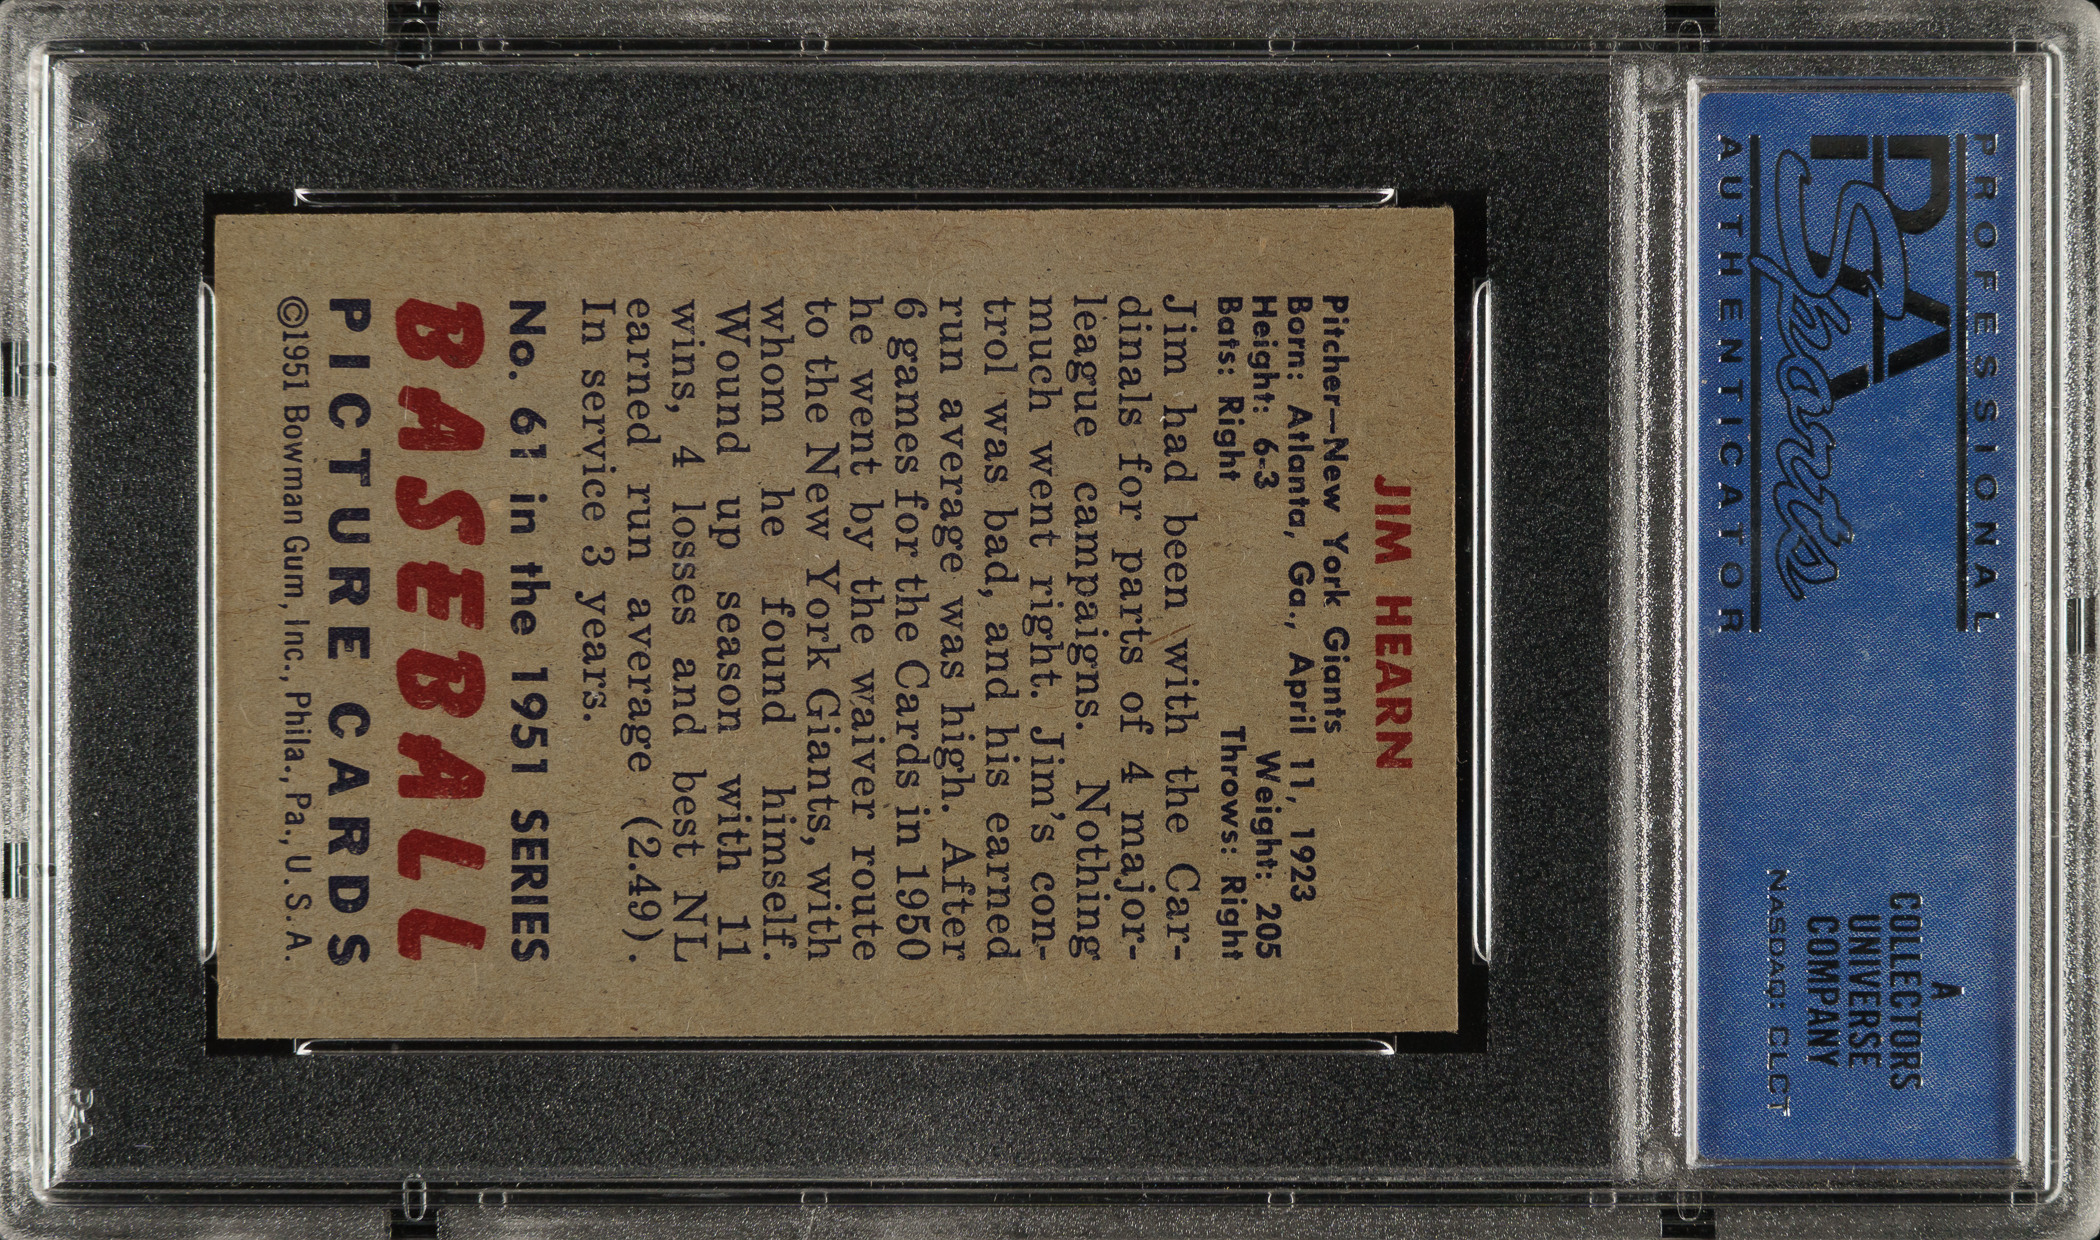 PROFESSIONAL
PSA
Sports
AUTHENTICATOR
A
COLLECTORS
UNIVERSE
COMPANY
NASDAQ: CLCT
JIM HEARN
Pitcher—New York Giants
Born: Atlanta, Ga., April 11, 1923
Height: 6-3 Weight: 205
Bats: Right Throws: Right
Jim had been with the Car-
dinals for parts of 4 major-
league campaigns. Nothing
much went right. Jim's con-
trol was bad, and his earned
run average was high. After
6 games for the Cards in 1950
he went by the waiver route
to the New York Giants, with
whom he found himself.
Wound up season with 11
wins, 4 losses and best NL
earned run average (2.49).
In service 3 years.
No. 61 in the 1951 SERIES
BASEBALL
PICTURE CARDS
©1951 Bowman Gum, Inc., Phila., Pa., U.S.A.